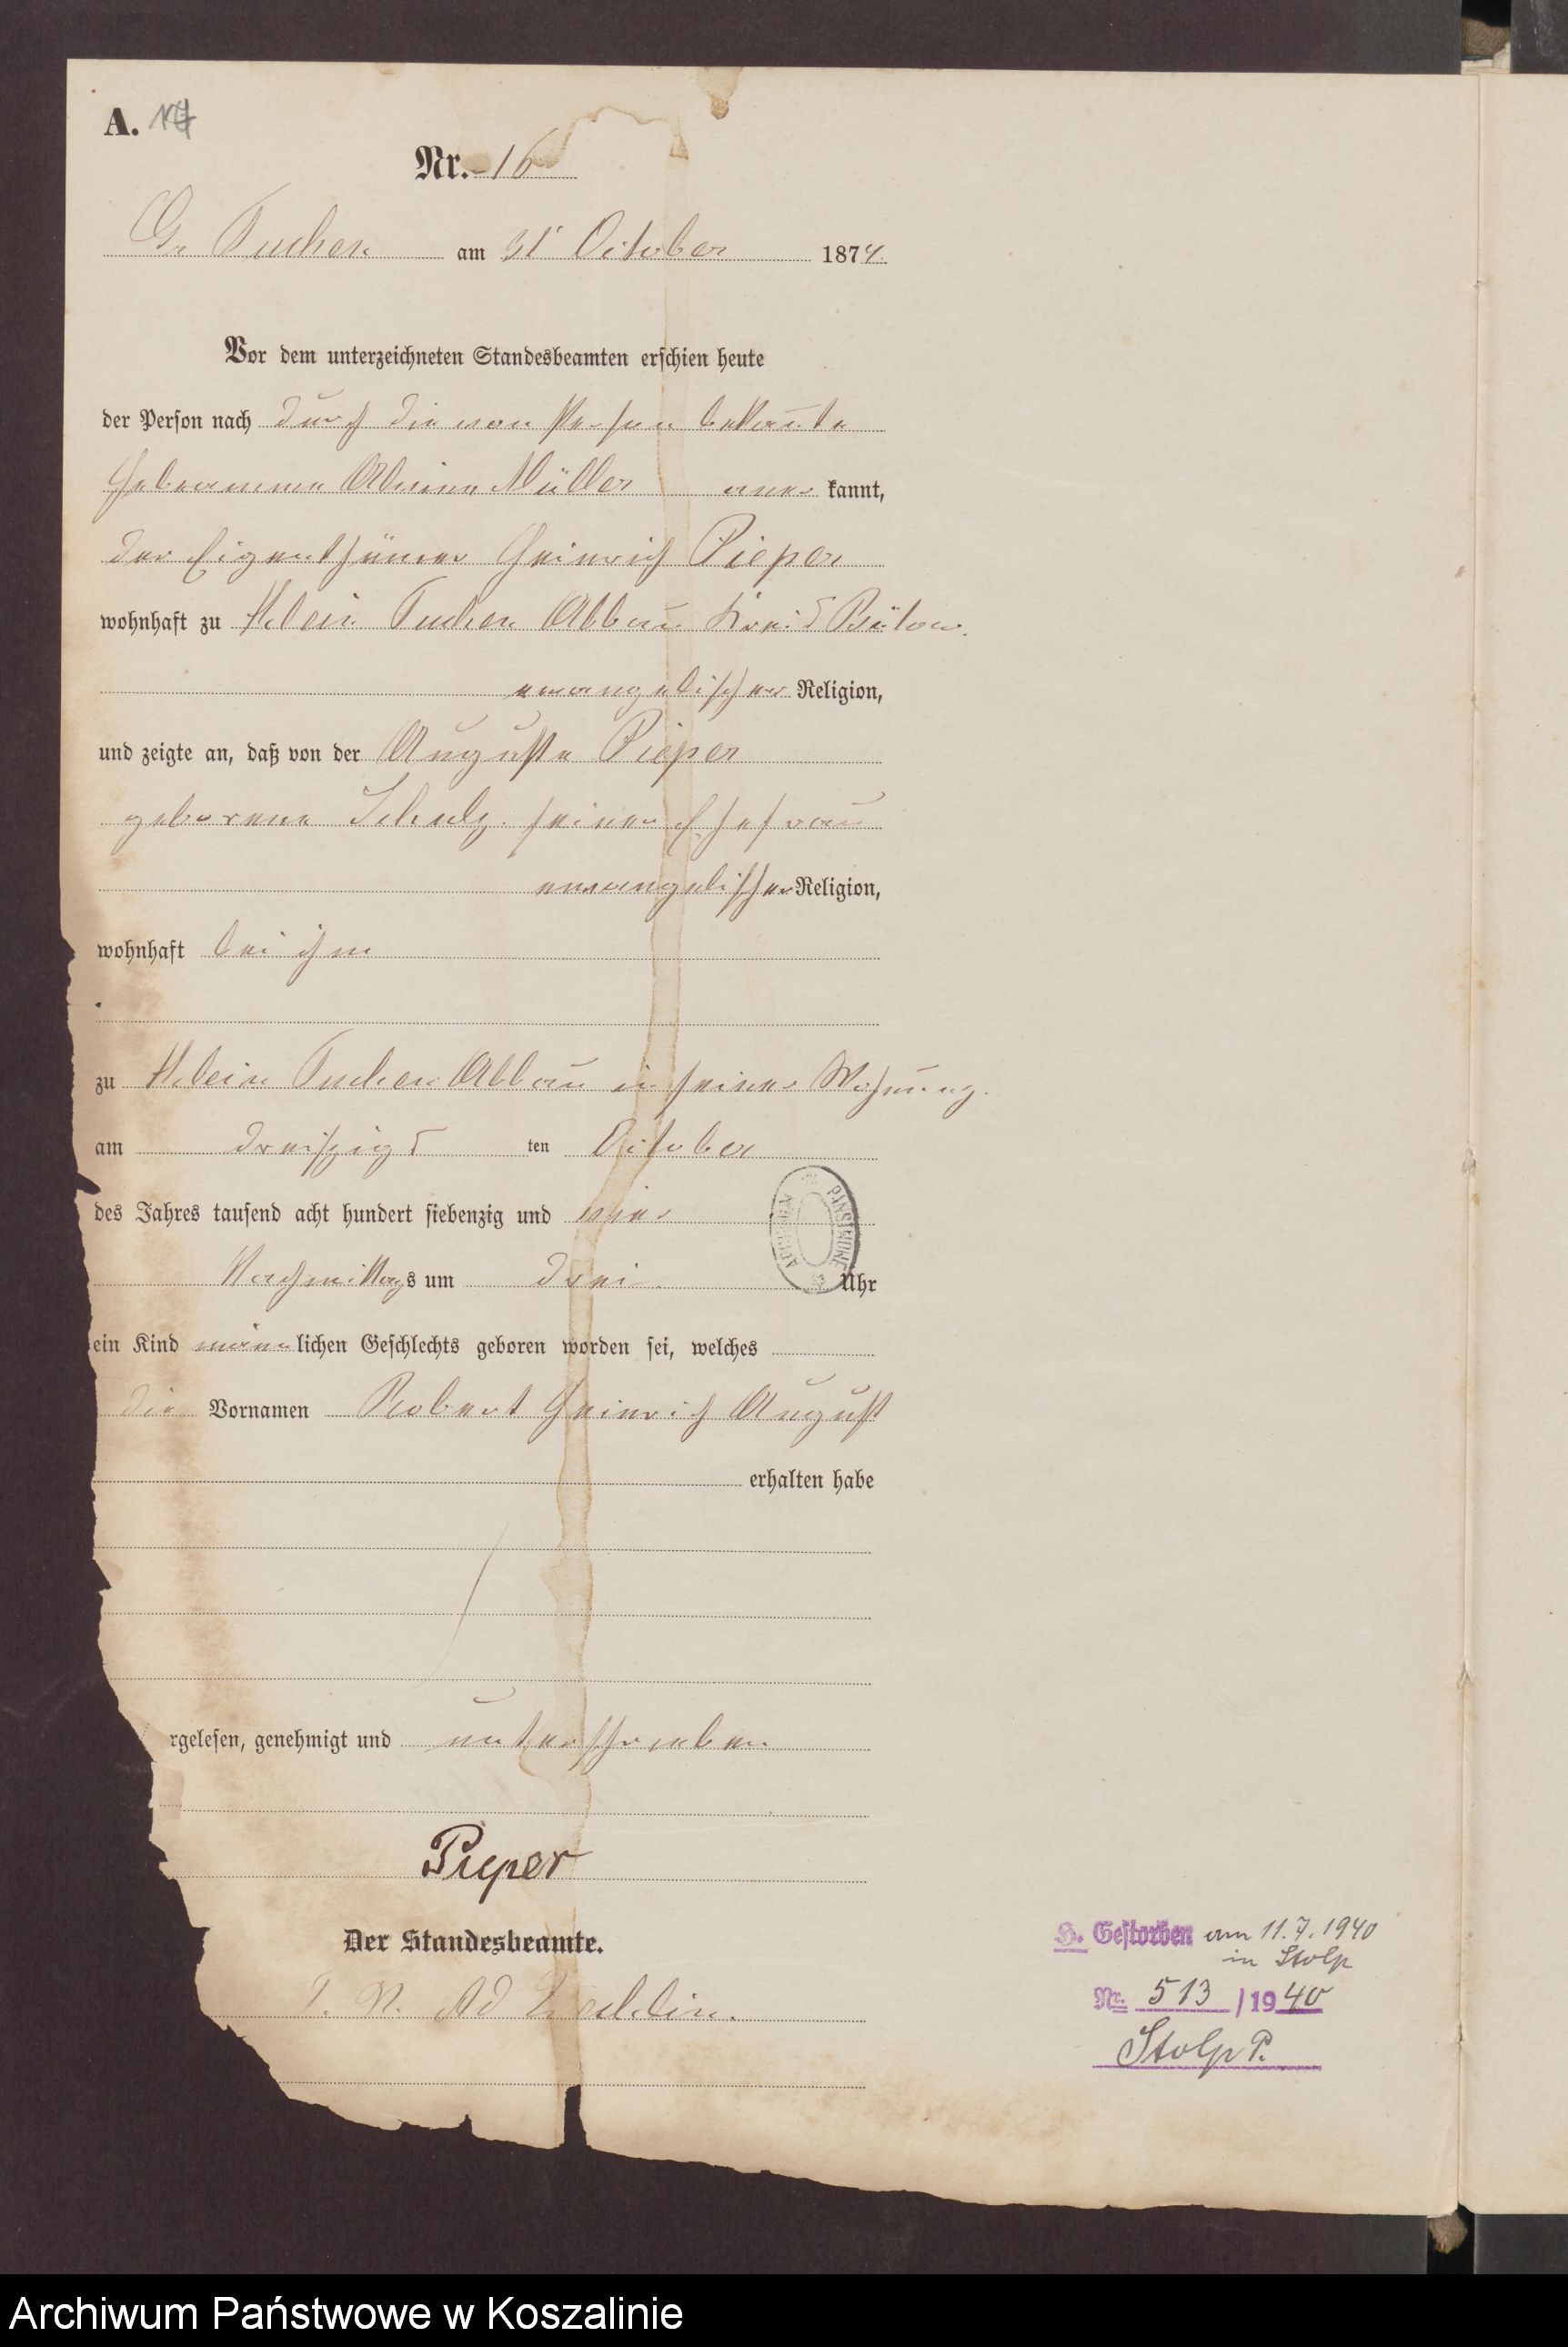 A. 17
Nr. 16
Gr. Tuchen am 31t October 1874.
Vor dem unterzeichneten Standesbeamten erschien heute
der Person nach durch die von Person bekannte
Hebeamme Müller aner kannt,
der Eigenthümer Heinrich Pieper
wohnhaft zu Klein Tuchen Abbau Kreis Bütow.
evangelischer Religion,
und zeigte an, daß von der Auguste Pieper
geborene Schulz seiner Ehefrau
evangelischer Religion,
wohnhaft bei ihm
zu Klein Tuchen Abbau in seiner Wohnung.
am dreißigs ten October
des Jahres tausend acht hundert siebenzig und vier
Nachmittags um drei Uhr
ein Kind männlichen Geschlechts geboren worden sei, welches
die Vornamen Robert Heinrich August
erhalten habe
rgelesen, genehmigt und unterschrieben
Pieper
Der Standesbeamte.
H. Gestorben am 11.7.1940
in Stolp
Nr. 513 /1940
Stolp P.
Archiwum Państwowe w Koszalinie